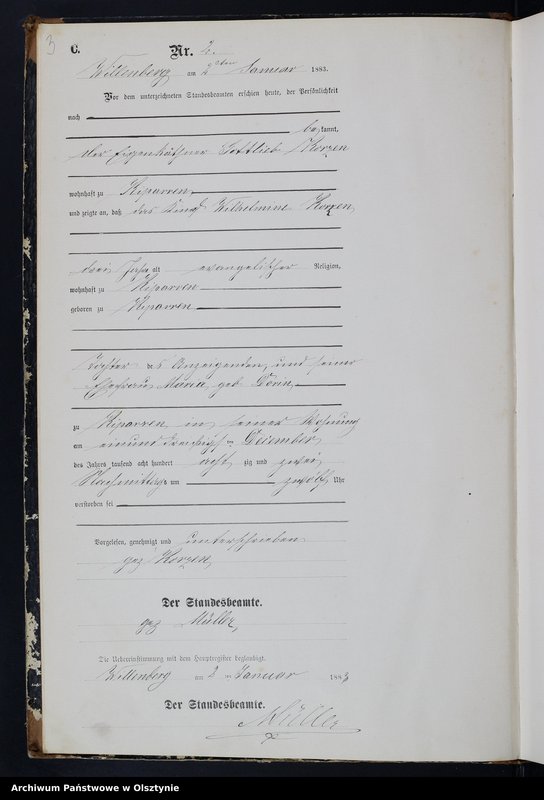 3
C.
Nr. 2.
Willenberg am 2ten Januar 1883.
Vor dem unterzeichneten Standesbeamten erschien heute, der Persönlichkeit
nach
bekannt,
der Eigenkäthner Gottlieb Korzen
wohnhaft zu Kiparren
und zeigte an, daß das Kind Wilhelmine Korzen,
drei Jahr alt evangelischer Religion,
wohnhaft zu Kiparren
geboren zu Kiparren
Tochter des Anzeigenden, und seiner
Ehefrau Maria, geb.
zu Kiparren in seiner Wohnung
am einund dreißigsten Dezember
des Jahres tausend acht hundert acht zig und zwei
Nachmittags um zwölf Uhr
verstorben sei
Vorgelesen, genehmigt und unterschrieben
gez Korzen,
Der Standesbeamte.
gez Müller,
Die Uebereinstimmung mit dem Hauptregister beglaubigt.
Willenberg am 2 ten Januar 1883
Der Standesbeamte.
Müller
Archiwum Państwowe w Olsztynie